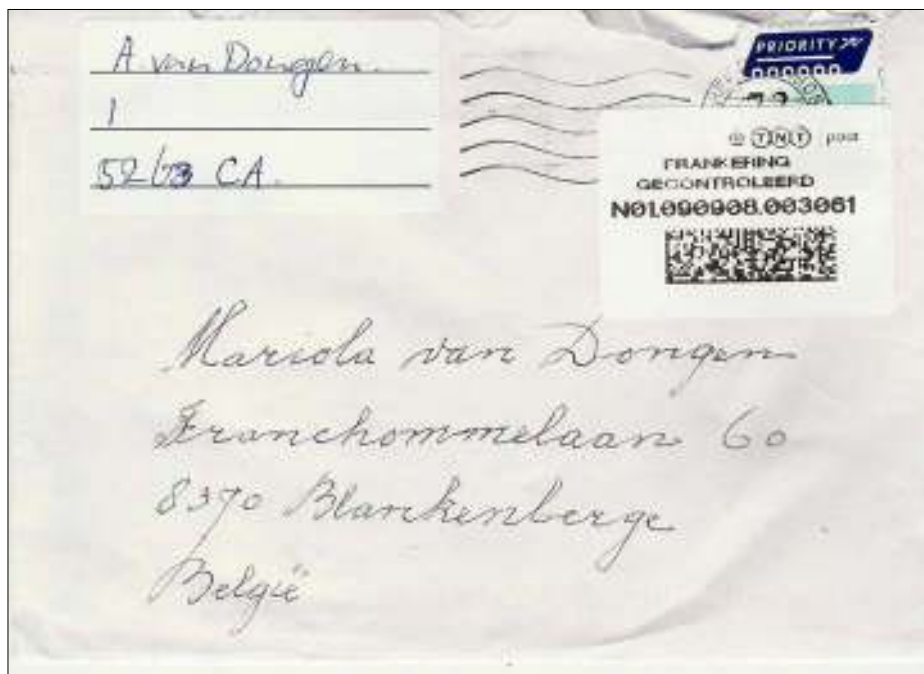 A van Dongen.
1
5263 CA.
PRIORITY
TNT post
FRANKERING
GECONTROLEERD
N01.090908.003061
Mariola van Dongen
Franchommelaan 60
8370 Blankenberge
België